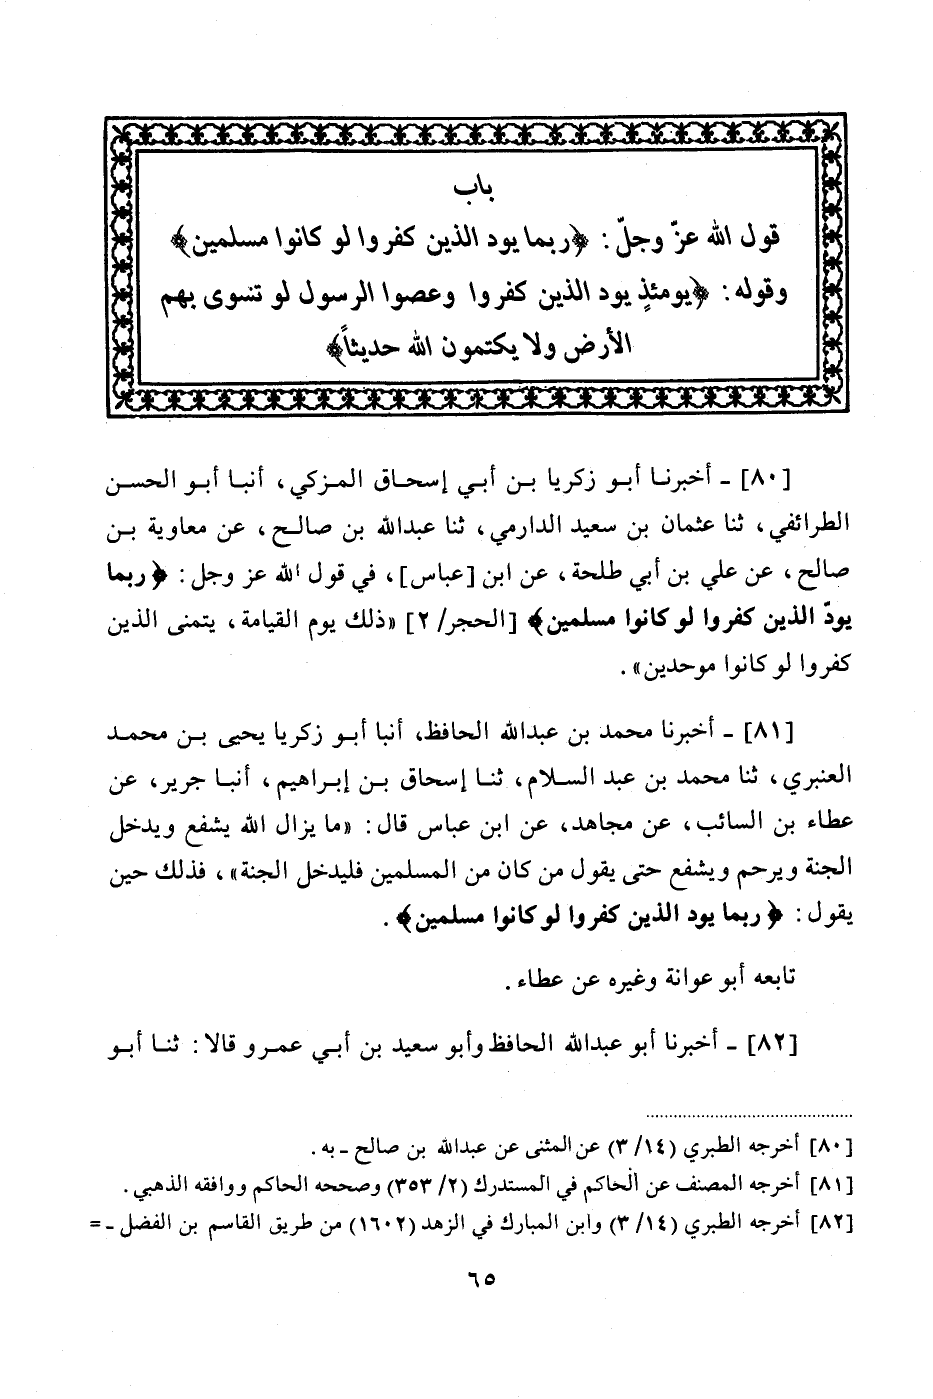 باب
قول الله عزّ وجلّ: ﴿ربما يود الذين كفروا لو كانوا مسلمين﴾
وقوله: ﴿يومئذٍ يود الذين كفروا وعصوا الرسول لو تسوى بهم
الأرض ولا يكتمون الله حديثاً﴾
[٨٠] ـ أخبرنا أبو زكريا بن أبي إسحاق المزكي، أنبا أبو الحسن
الطرائفي، ثنا عثمان بن سعيد الدارمي، ثنا عبدالله بن صالح، عن معاوية بن
صالح، عن علي بن أبي طلحة، عن ابن [عباس]، في قول الله عز وجل: ﴿ربما
يودّ الذين كفروا لو كانوا مسلمين﴾ [الحجر/ ٢] «ذلك يوم القيامة، يتمنى الذين
كفروا لو كانوا موحدين».
[٨١] ـ أخبرنا محمد بن عبدالله الحافظ، أنبا أبو زكريا يحيى بن محمد
العنبري، ثنا محمد بن عبد السلام، ثنا إسحاق بن إبراهيم، أنبا جرير، عن
عطاء بن السائب، عن مجاهد، عن ابن عباس قال: «ما يزال الله يشفع ويدخل
الجنة ويرحم ويشفع حتى يقول من كان من المسلمين فليدخل الجنة»، فذلك حين
يقول: ﴿ربما يود الذين كفروا لو كانوا مسلمين﴾.
تابعه أبو عوانة وغيره عن عطاء.
[٨٢] ـ أخبرنا أبو عبدالله الحافظ وأبو سعيد بن أبي عمرو قالا: ثنا أبو
[٨٠] أخرجه الطبري (١٤/ ٣) عن المثنى عن عبدالله بن صالح ـ به.
[٨١] أخرجه المصنف عن الحاكم في المستدرك (٢/ ٣٥٣) وصححه الحاكم ووافقه الذهبي.
[٨٢] أخرجه الطبري (١٤/ ٣) وابن المبارك في الزهد (١٦٠٢) من طريق القاسم بن الفضل ـ =
٦٥